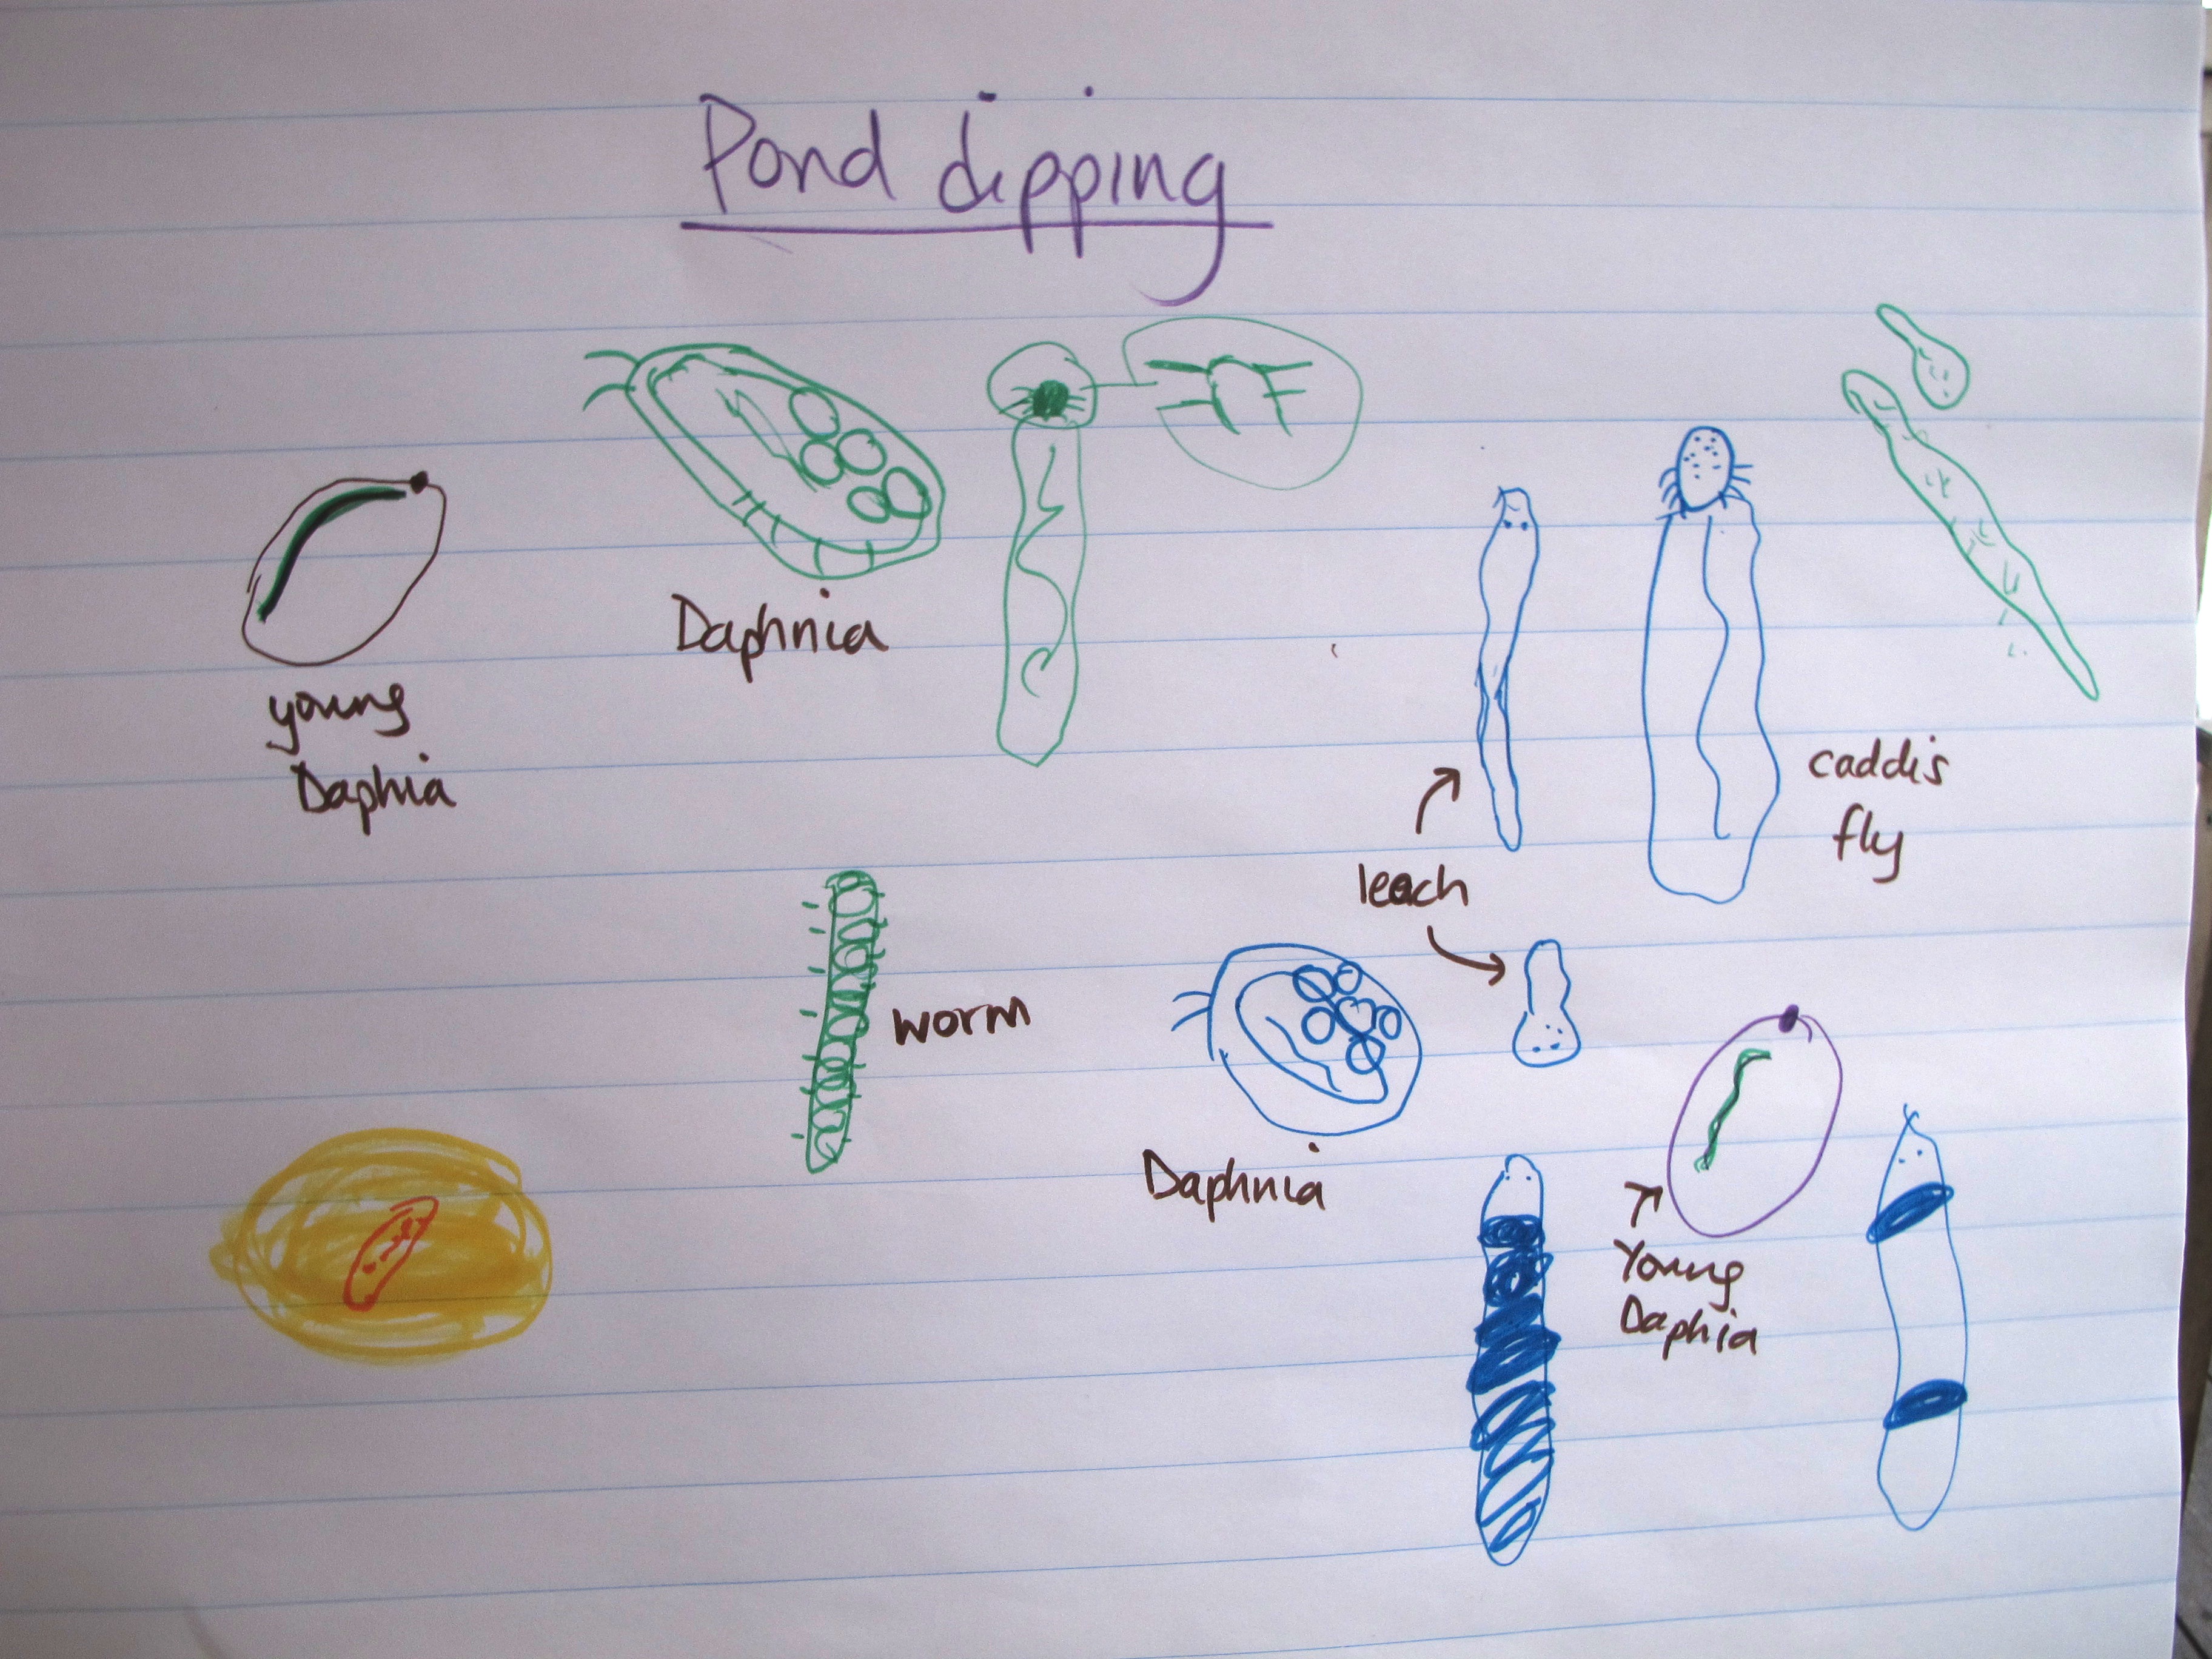 Pond dipping
young
Daphia
Daphnia
caddis
fly
leach
worm
Daphnia
Young
Daphia